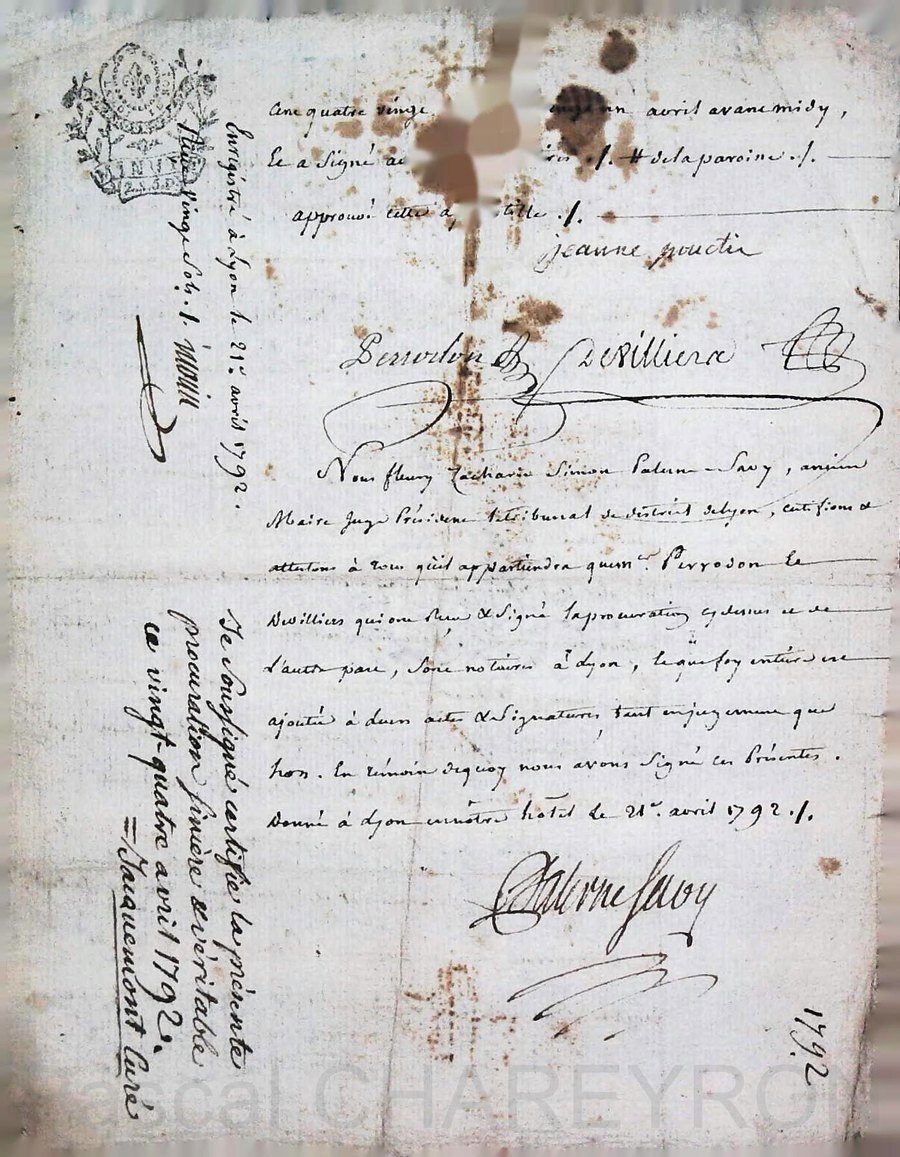 cent quatre vingt avril avant midy,
Et a signé # de la paroisse ./.
approuvé cette ./.
jeanne
Perrodon Devilliers
Nous fleury Zacharie Simon Palerne-Savy, ancien
Maire Juge Président le tribunal de district de Lyon, certifions &
attestons à tous qu'il appartiendra que mrs. Perrodon Et
Devilliers qui ont Reçu & Signé la procuration cy dessus et de
l'autre part, sont notaires à Lyon, & que foy entière est
ajoutée à leurs actes & Signatures, tant en jugement que
hors. En témoin de quoy nous avons Signé ces Présentes.
Donné à Lyon en nôtre hôtel le 21e. avril 1792 ./.
Palerne Savy
Enrégistré à Lyon le 21e. avril 1792.
Reçu vingt sols ./.
Je soussigné certifie la présente
procuration sincère & véritable
ce vingt-quatre avril 1792.
= Jacquemont Curé
1792
Pascal CHAREYRON